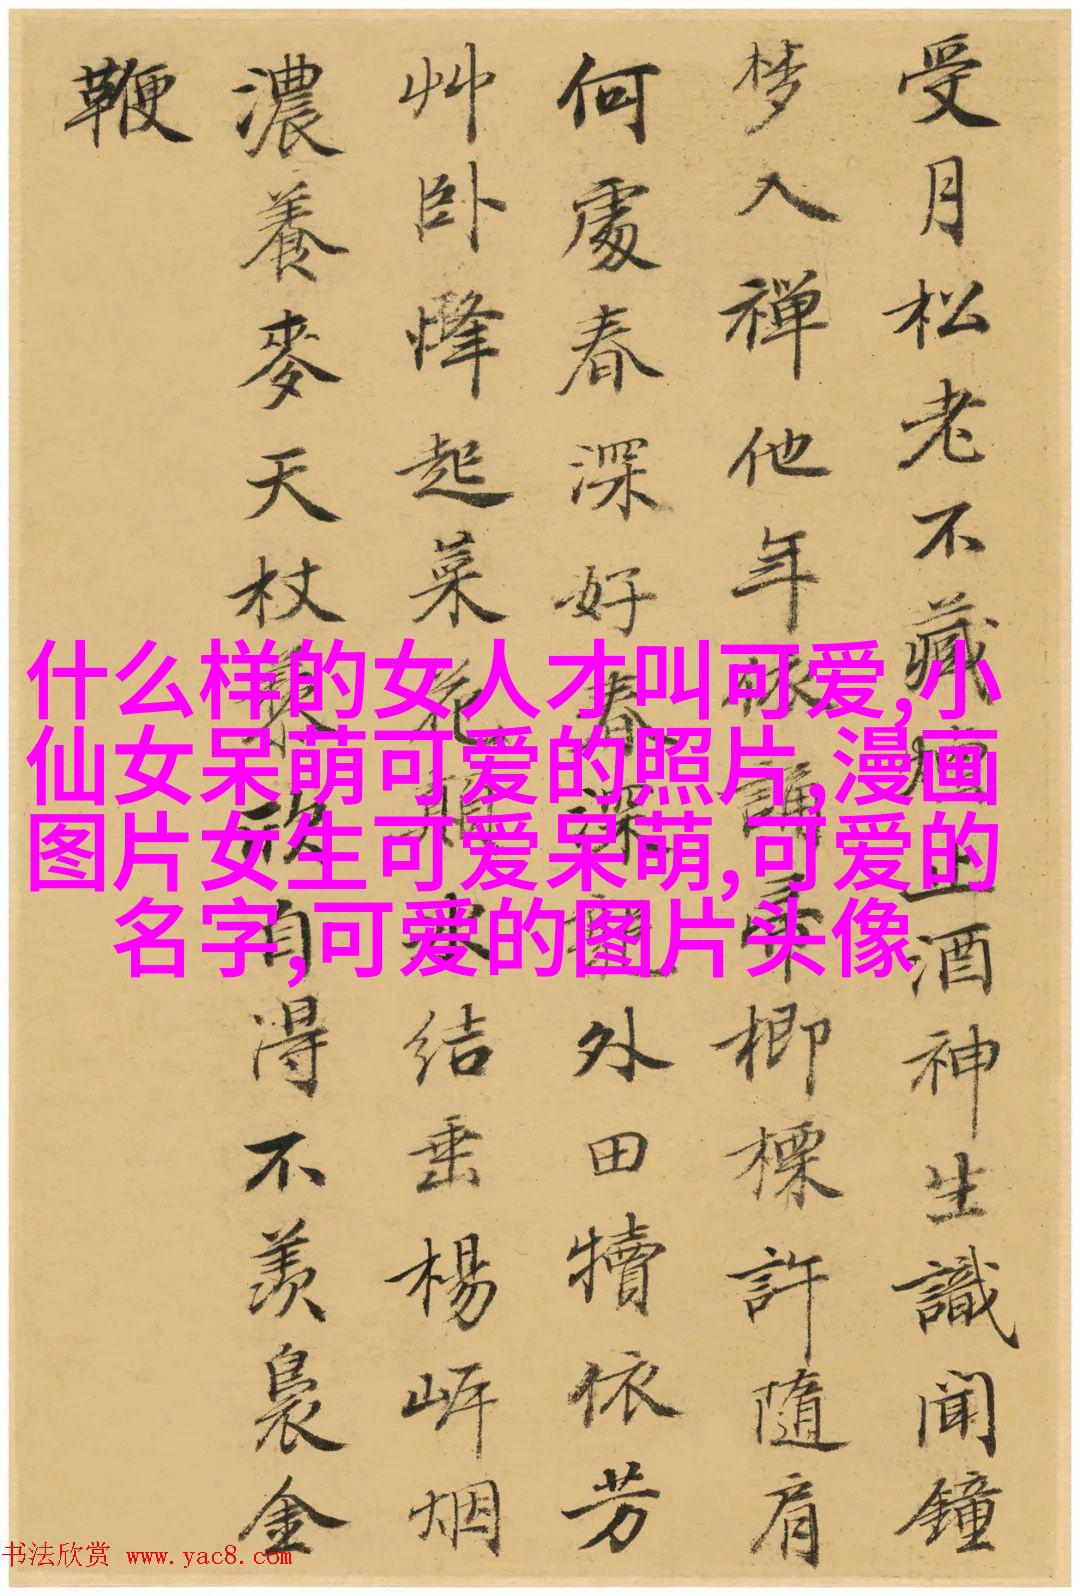 受月松老不藏上酒神生識聞鐘
梦入禅他年講榔標許隨肩
何處春深好春深外田犢依芳
艸卧起菜花結垂楊岍烟
濃養麥天杖藜欣自得不羡裊金
鞭
什么样的女人才叫可爱,小
仙女呆萌可爱的照片,漫画
图片女生可爱呆萌,可爱的
名字,可爱的图片头像
书法欣赏 www.yac8.com